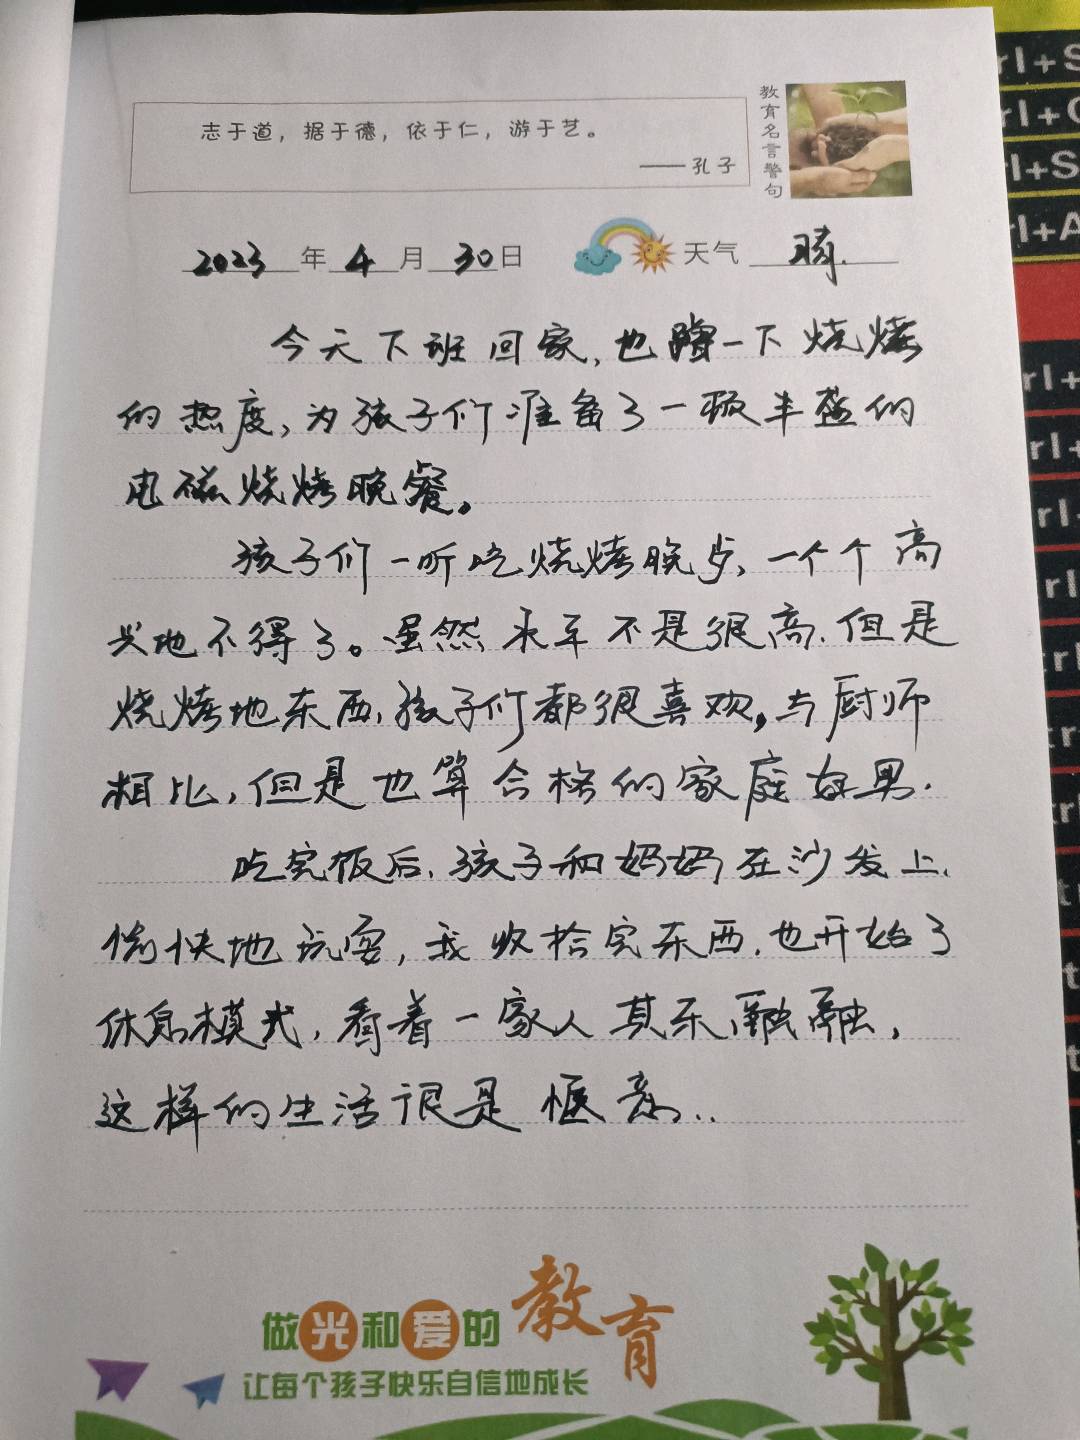 志于道，据于德，依于仁，游于艺。
——孔子
教育名言警句
2023年4月30日 天气 晴.
今天下班回家,也蹭一下烧烤
的热度,为孩子们准备了一顿丰盛的
电磁烧烤晚餐。
孩子们一听吃烧烤晚歺,一个个高
兴地不得了。虽然水平不是很高.但是
烧烤地东西,孩子们都很喜欢,与厨师
相比,但是也算合格的家庭好男.
吃完饭后.孩子和妈妈在沙发上.
愉快地玩耍,我收拾完东西.也开始了
休息模式,看着一家人其乐融融,
这样的生活很是惬意..
做光和爱的教育
让每个孩子快乐自信地成长
rl+S
rl+C
rl+S
rl+A